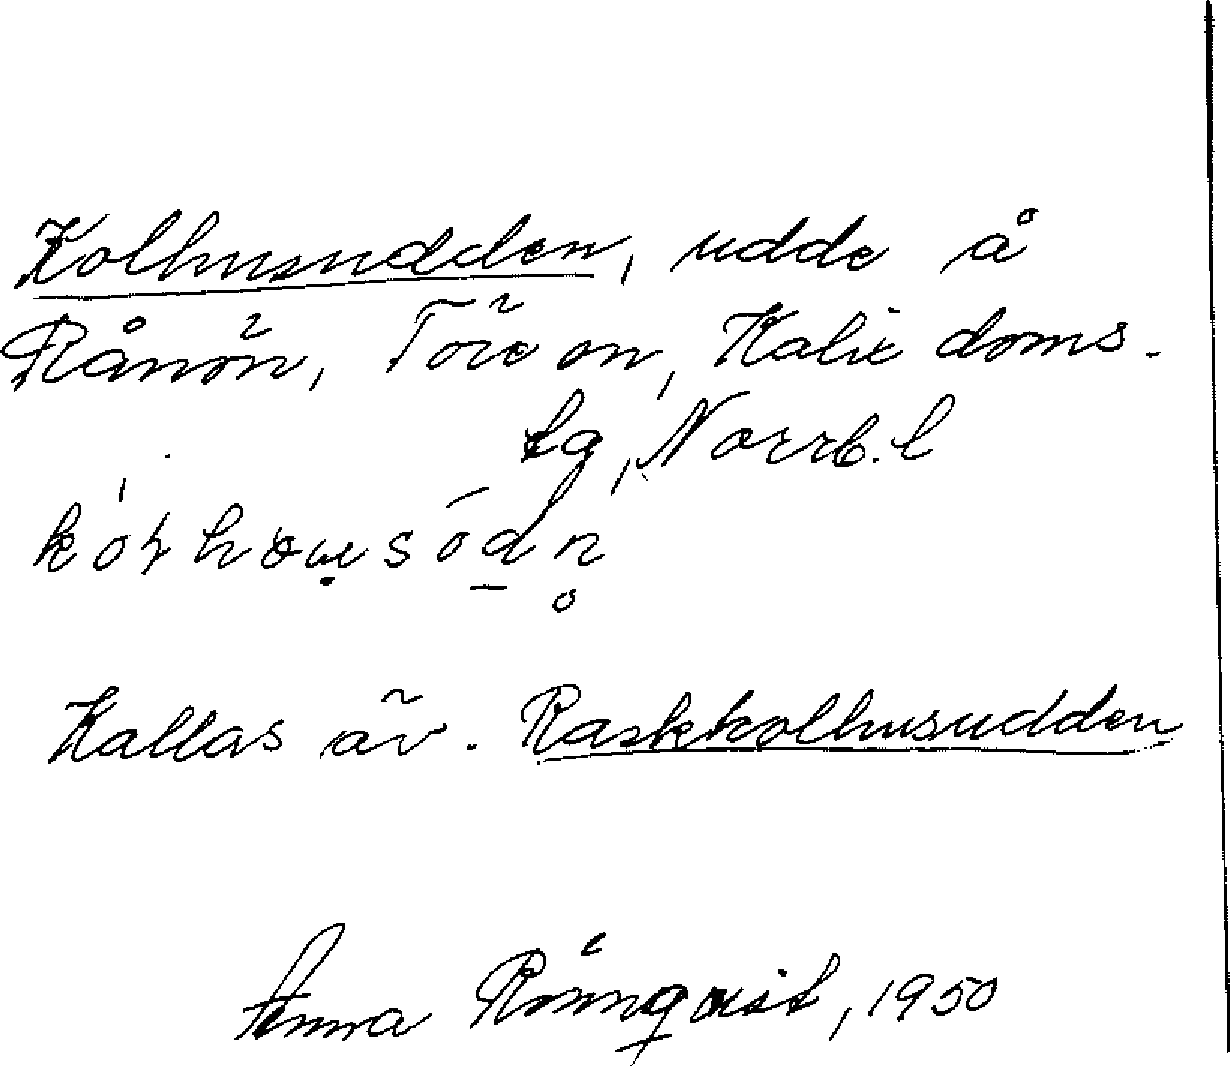 Kolhusudden, udde å
Rånön, Töre sn, Kalix doms-
tg, Norrb. l
Kallas äv. Raskkolhusudden
Anna Rönnqvist, 1950